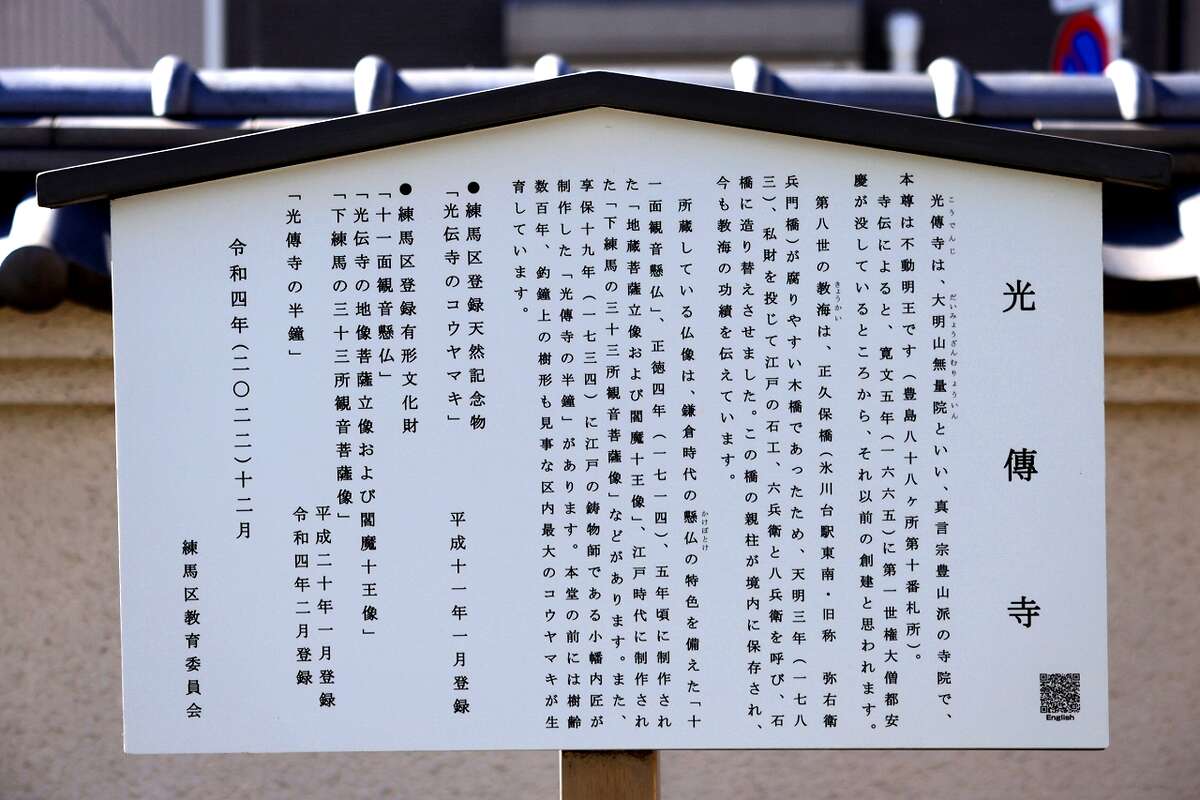 光傳寺
光傳寺は、大明山無量院といい、真言宗豊山派の寺院で、
こうでんじ
だいみょうざんむりょういん
本尊は不動明王です（豊島八十八ヶ所第十番札所）。
寺伝によると、寛文五年（一六六五）に第一世権大僧都安
慶が没しているところから、それ以前の創建と思われます。
第八世の教海は、正久保橋（氷川台駅東南・旧称　弥右衛
きょうかい
兵門橋）が腐りやすい木橋であったため、天明三年（一七八
三）、私財を投じて江戸の石工、六兵衛と八兵衛を呼び、石
橋に造り替えさせました。この橋の親柱が境内に保存され、
今も教海の功績を伝えています。
所蔵している仏像は、鎌倉時代の懸仏の特色を備えた「十
かけぼとけ
一面観音懸仏」、正徳四年（一七一四）、五年頃に制作され
た「地蔵菩薩立像および閻魔十王像」、江戸時代に制作され
た「下練馬の三十三所観音菩薩像」などがあります。また、
享保十九年（一七三四）に江戸の鋳物師である小幡内匠が
制作した「光傳寺の半鐘」があります。本堂の前には樹齢
数百年、釣鐘上の樹形も見事な区内最大のコウヤマキが生
育しています。
●練馬区登録天然記念物
「光伝寺のコウヤマキ」　平成十一年一月登録
●練馬区登録有形文化財
「十一面観音懸仏」
「光伝寺の地像菩薩立像および閻魔十王像」
「下練馬の三十三所観音菩薩像」　平成二十年一月登録
「光傳寺の半鐘」　令和四年二月登録
令和四年（二〇二二）十二月
練馬区教育委員会
English